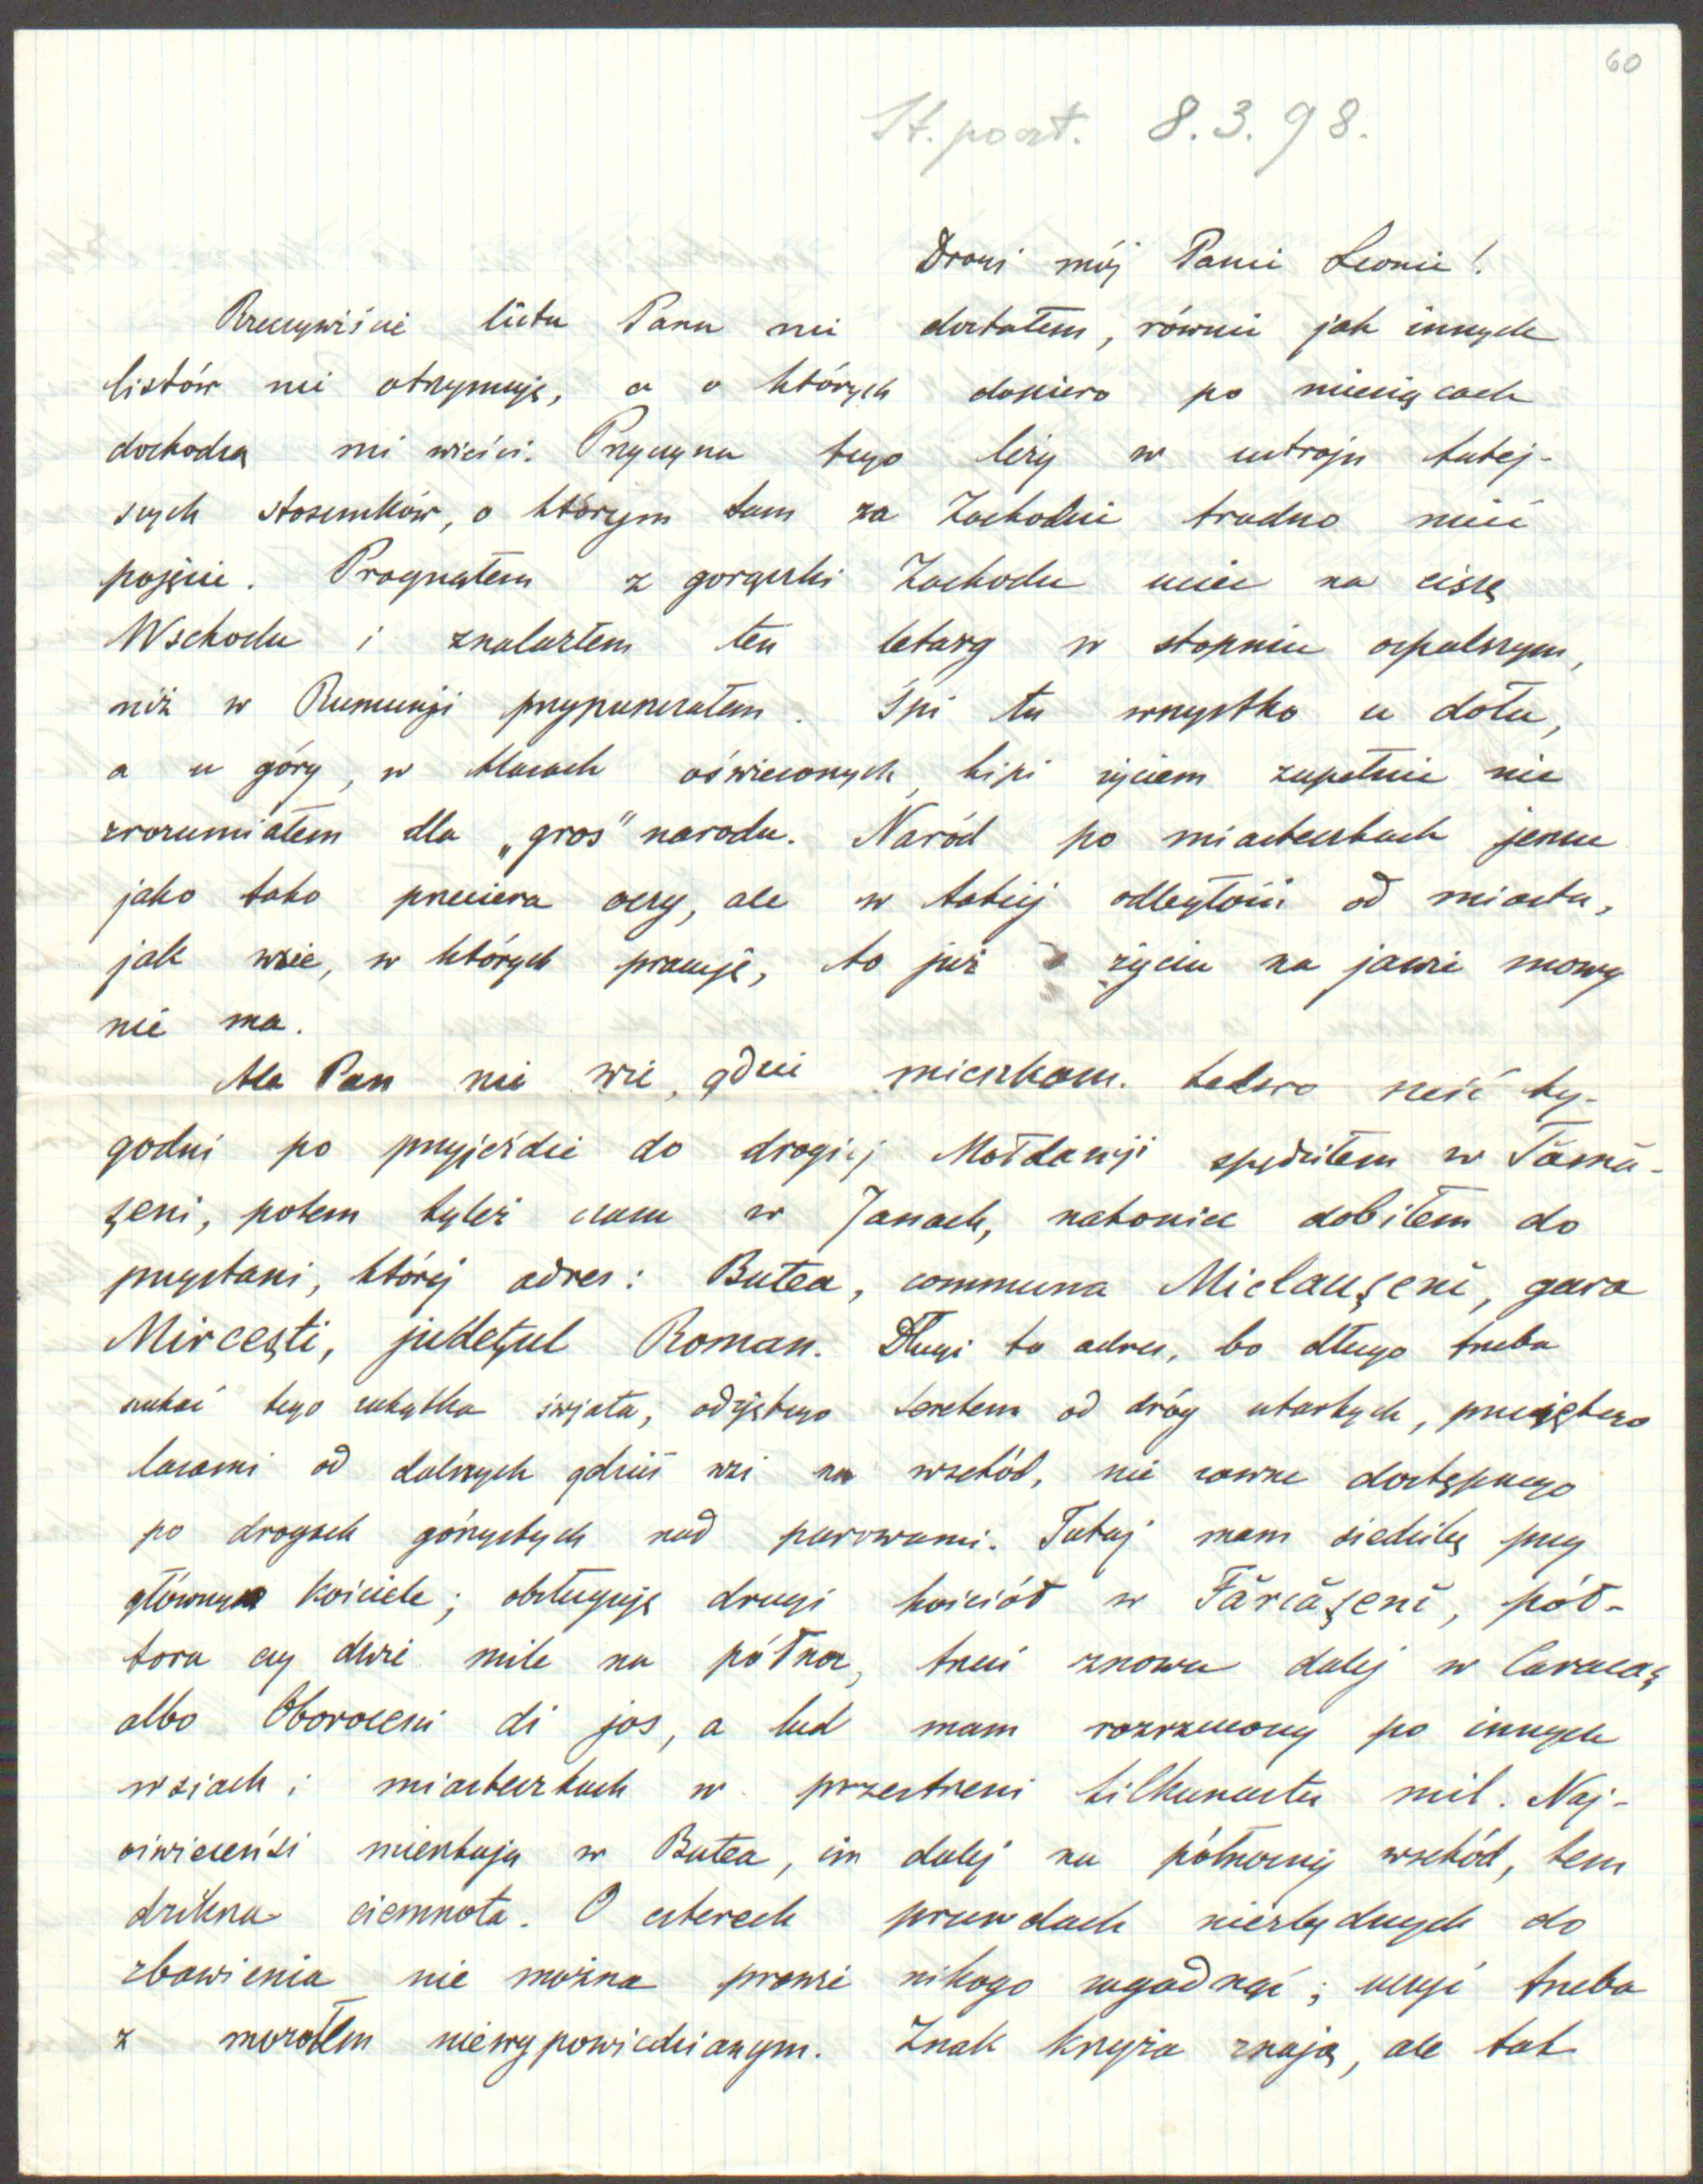 60
St. poczt. 8.3.98.
Drogi mój Panie Leonie!
Rzeczywiście listu Pana nie dostałem, równie jak innych
listów nie otrzymuję, a o których dopiero po miesiącach
dochodzą mi wieści. Przyczyna tego leży w ustroju tutej-
szych stosunków, o którym tam za Zachodzie trudno mieć
pojęcie. Pragnąłem z gorączki Zachodu uciec na ciszę
Wschodu i znalazłem ten letarg w stopniu ospalszym,
niż w Rumunji przypuszczałem. Śpi tu wszystko u dołu,
a u góry, w klasach oświeconych, kipi życiem zupełnie nie
zrozumiałem dla „gros" narodu. Naród po miasteczkach jeszcze
jako tako przeciera oczy, ale w takiej odległości od miasta,
jak wsie, w których pracuję, to już życiu na jawie mowy
nie ma.
Ale Pan nie wie, gdzie mieszkam. sześć ty-
godni po przyjeździe do drogiej Mołdawji spędziłem w Tămă-
şeni, potem tyleż czasu w Janach, nakoniec dobiłem do
przystani, której adres: Butea, communa Miclauşeni, gara
Mirceşti, judeţul Roman. Długi to adres, bo długo trzeba
szukać tego zakątka świata, odjętego Seretem od dróg utartych, przeciętego
lasami od dalszych gdzieś wsi na wschód, nie zawsze dostępnego
po drogach górzystych nad parowami. Tutaj mam siedzibę przy
głównym kościele; obsługuję drugi kościół w Fărcăşeni, pół-
tora czy dwie mile na północ, trzeci znowu dalej w Caracaş
albo Oboroceni di jos, a lud mam rozrzucony po innych
wsiach i miasteczkach w przestrzeni kilkunastu mil. Naj-
oświeceńsi mieszkają w Butea, im dalej na północny wschód, tem
dziksza ciemnota. O czterech prawdach niezbędnych do
zbawienia nie można prawie nikogo zagadnąć; uczyć trzeba
z mozołem niewypowiedzianym. Znak krzyża znają, ale tak